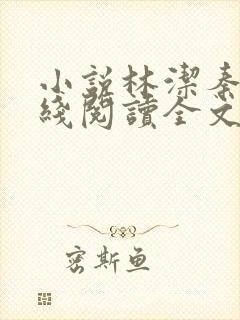 小說林潔秦
綫閱讀全文
密斯魚